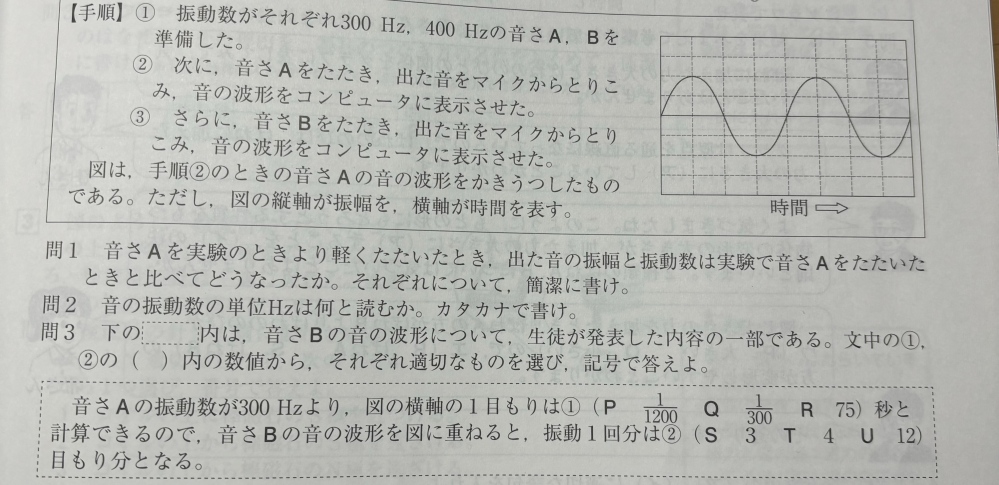 【手順】① 振動数がそれぞれ300 Hz，400 Hzの音さA，Bを
準備した。
② 次に，音さAをたたき，出た音をマイクからとりこ
み，音の波形をコンピュータに表示させた。
③ さらに，音さBをたたき，出た音をマイクからとり
こみ，音の波形をコンピュータに表示させた。
図は，手順②のときの音さAの音の波形をかきうつしたもの
である。ただし，図の縦軸が振幅を，横軸が時間を表す。
時間 ⇨
問1 音さAを実験のときより軽くたたいたとき，出た音の振幅と振動数は実験で音さAをたたいた
ときと比べてどうなったか。それぞれについて，簡潔に書け。
問2 音の振動数の単位Hzは何と読むか。カタカナで書け。
問3 下の内は，音さBの音の波形について，生徒が発表した内容の一部である。文中の①，
②の（ ）内の数値から，それぞれ適切なものを選び，記号で答えよ。
音さAの振動数が300 Hzより，図の横軸の1目もりは①（P 1/1200 Q 1/300 R 75）秒と
計算できるので，音さBの音の波形を図に重ねると，振動1回分は②（S 3 T 4 U 12）
目もり分となる。